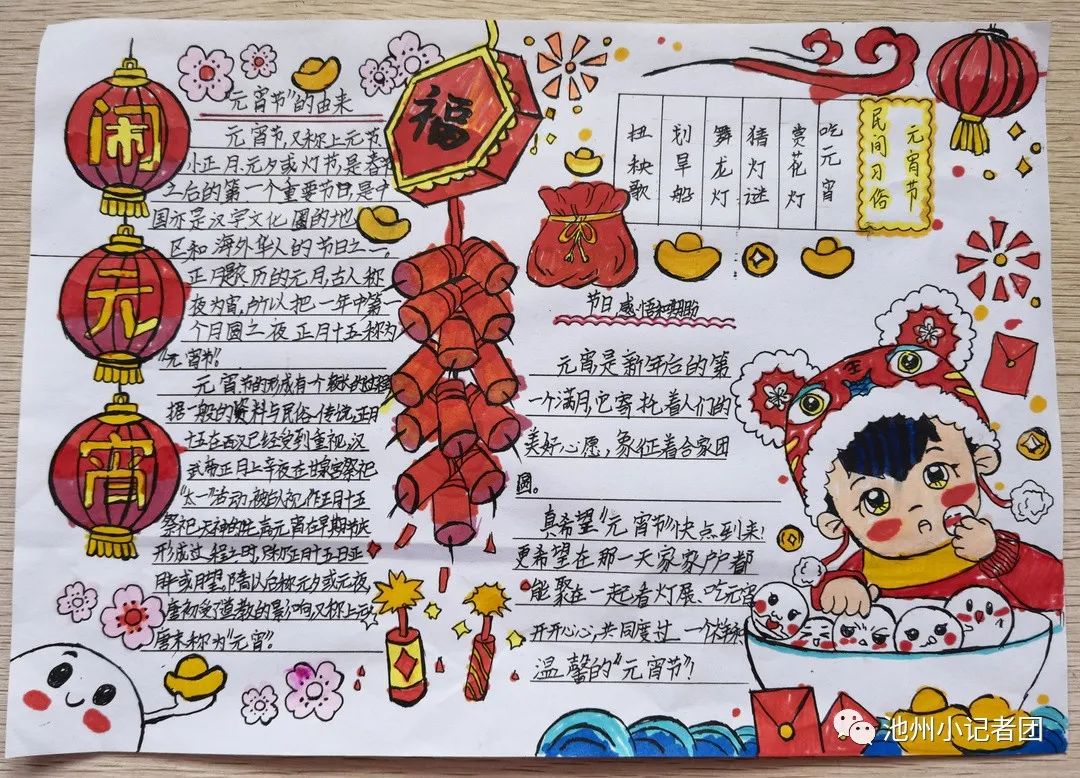 闹元宵
"元宵节"的由来
元宵节,又称上元节
小正月元夕或灯节是春节
之后的第一个重要节日是中
国亦是汉字文化圈的地
区和海外华人的节日之一。
正月是农历的元月,古人称
夜为宵,所以把一年中第一
个月圆之夜正月十五称为
"元宵节"。
元宵节的形成有一个较长的过程
据一般的资料与民俗传说正月
十五在西汉已经受到重视,汉
武帝正月上辛夜在甘泉宫祭祀
"太一"活动,被后人视作正月十五
祭祀天神的先声元宵在早期节庆
形成过程之时,只称正月十五日正
月半或月望,隋以后称元夕或元夜,
唐初受了道教的影响,又称上元,
唐末称为"元宵"。
福
元宵节
民间习俗
吃元宵
赏花灯
猜灯谜
舞龙灯
划旱船
扭秧歌
节日感悟和期盼
元宵是新年后的第
一个满月,它寄托着人们的
美好心愿,象征着合家团
圆。
真希望"元宵节"快点到来!
更希望在那一天家家户户都
能聚在一起看灯展、吃元宵
开开心心,共同度过一个
温馨的"元宵节"!
池州小记者团